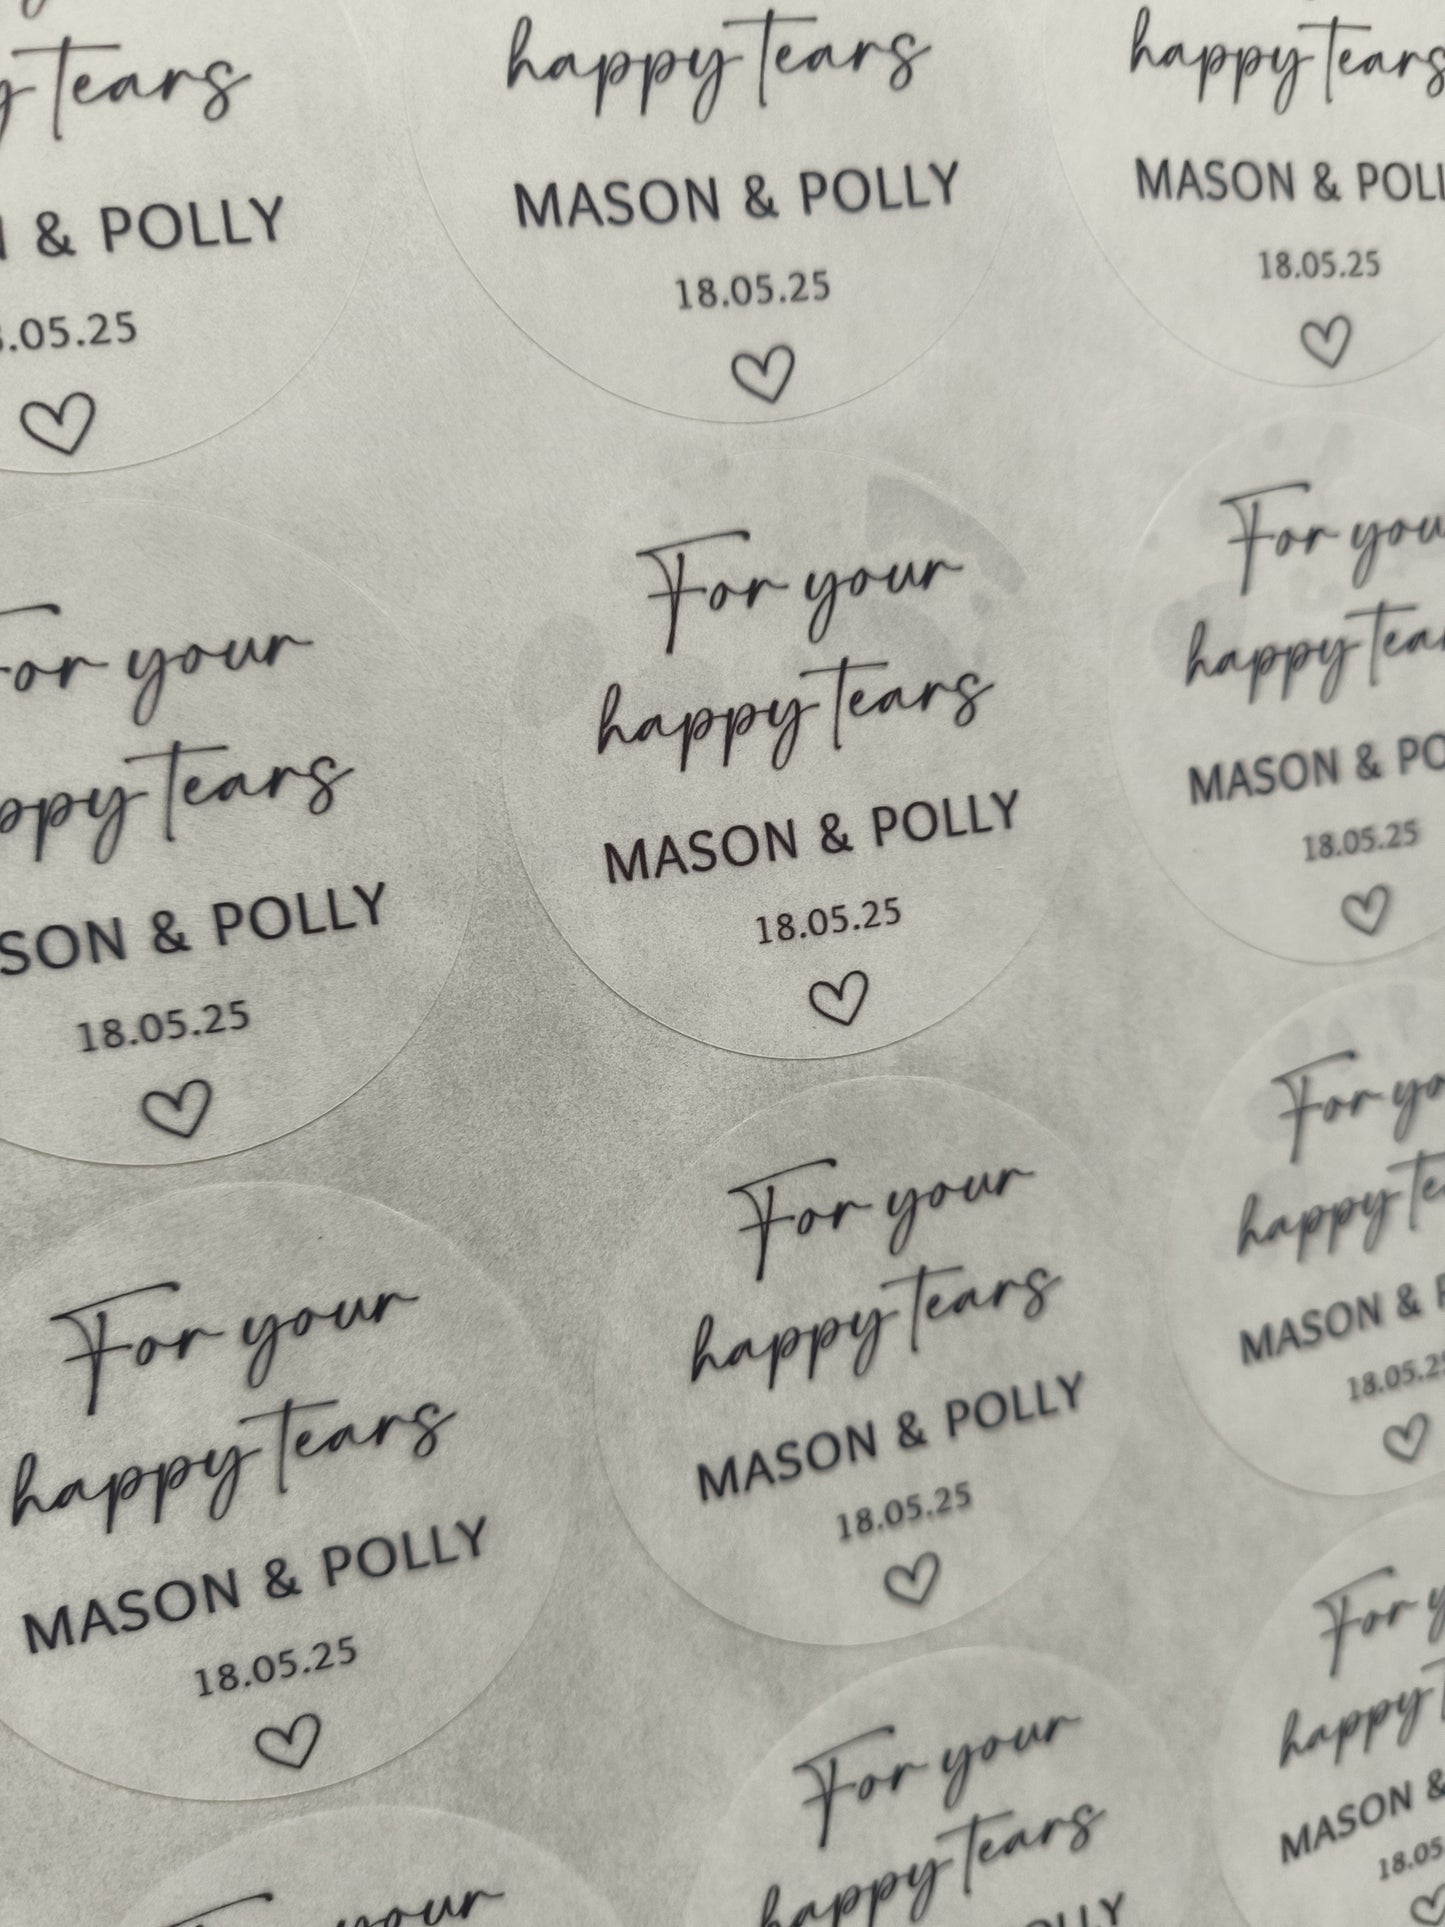 happy tears
MASON & POLLY
18.05.25
happy tears
MASON & POLLY
18.05.25
happy tears
MASON & POLL
18.05.25
For your
happy tears
MASON & POLLY
18.05.25
For your
happy tears
MASON & POLLY
18.05.25
For you
happy tea
MASON & PO
18.05.25
For your
happy tears
MASON & POLLY
18.05.25
For your
happy tears
MASON & POLLY
18.05.25
For yo
happy te
MASON & P
18.05.25
For your
For your
happy tears
OLLY
For y
happy t
MASON &
18.05